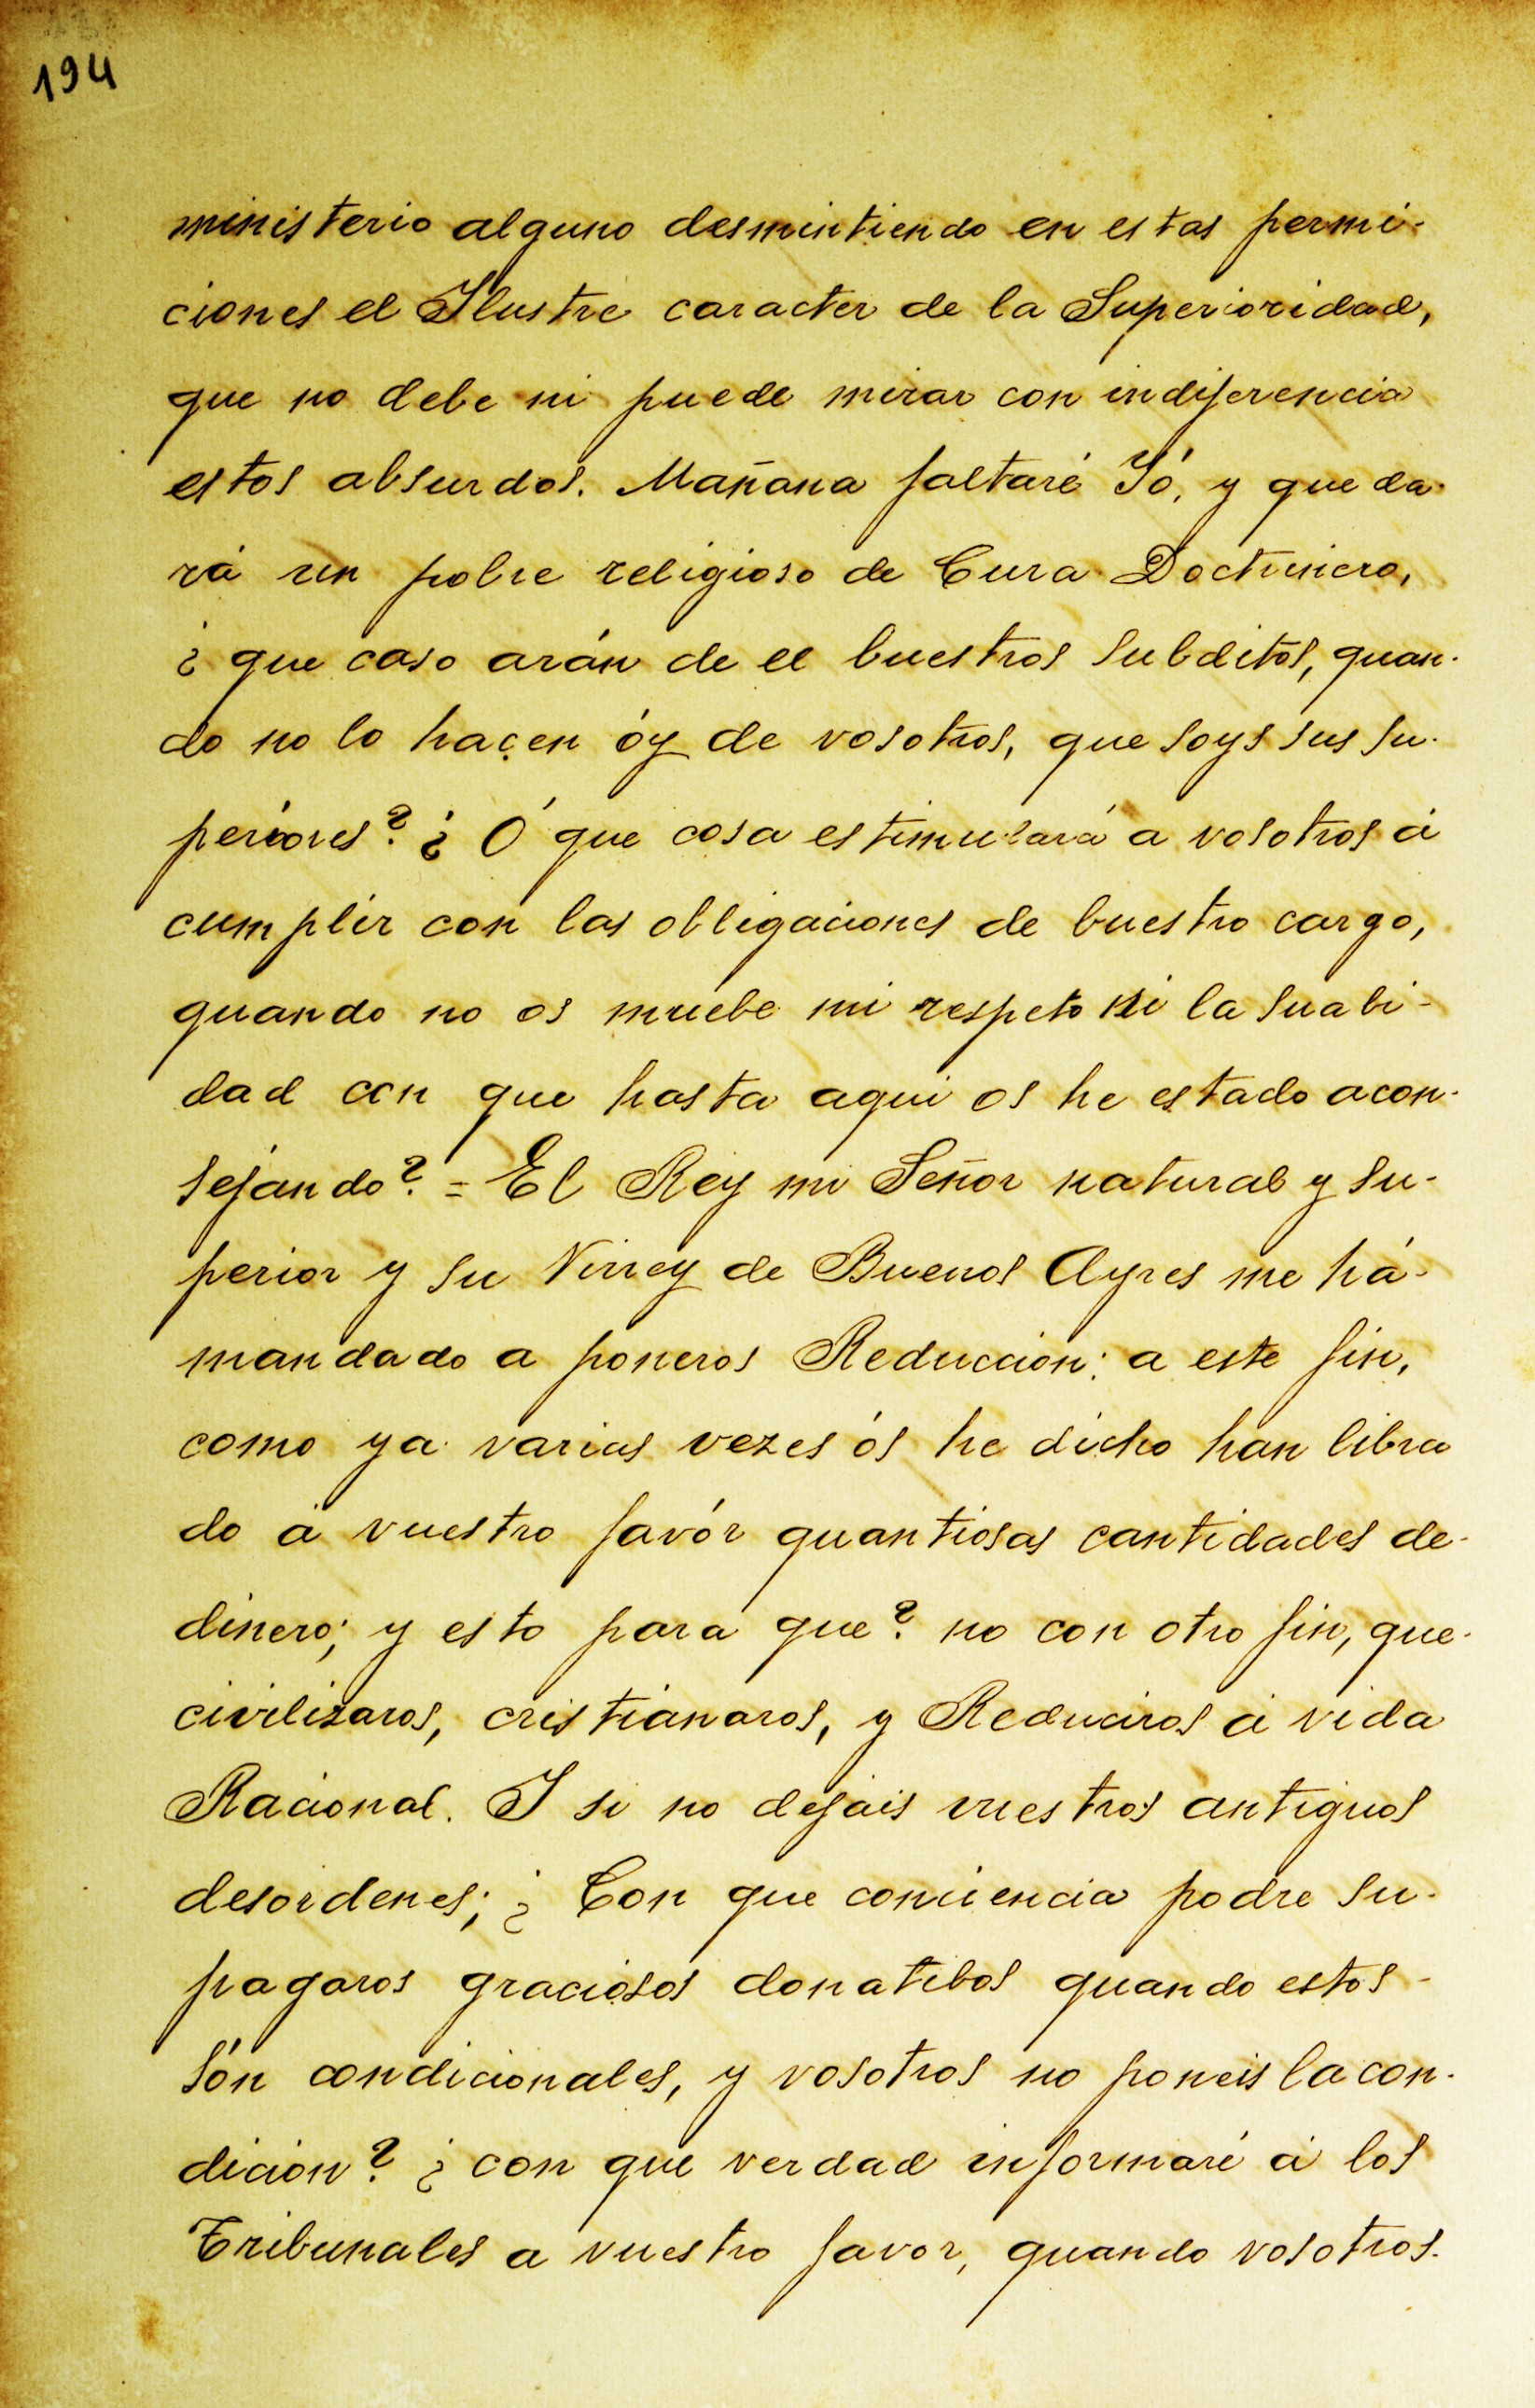 194
ministerio alguno desmintiendo en estas permi-
ciones el Ilustre caracter de la Superioridad,
que no debe ni puede mirar con indiferencia
estos absurdos. Mañana faltaré Yó, y queda-
rá un pobre religioso de Cura Doctrinero,
¿ que caso arán de el buestros subditos, quan-
do no lo haçen óy de vosotros, que soys sus su-
periores? ¿ Ó que cosa estimulará a vosotros á
cumplir con las obligaciones de buestro cargo,
quando no os muebe mi respeto ni la suabi-
dad con que hasta aqui os he estado acon-
sejando? = El Rey mi Señor natural y su-
perior y su Virrey de Buenos Ayres me há-
mandado a poneros Reduccion: a este fin,
como ya varias vezes ós he dicho han libra
do á vuestro favór quantiosas cantidades de-
dinero; y esto para que? no con otro fin, que-
civilizaros, cristianaros, y Reduciros á vida
Racional. I si no dejais vuestros antiguos
desordenes; ¿ Con que conciencia podre su-
pagaros graciosos donatibos quando estos-
són condicionales, y vosotros no poneis la con-
dicion? ¿ con que verdad informaré á los
Tribunales a vuestro favor, quando vosotros-